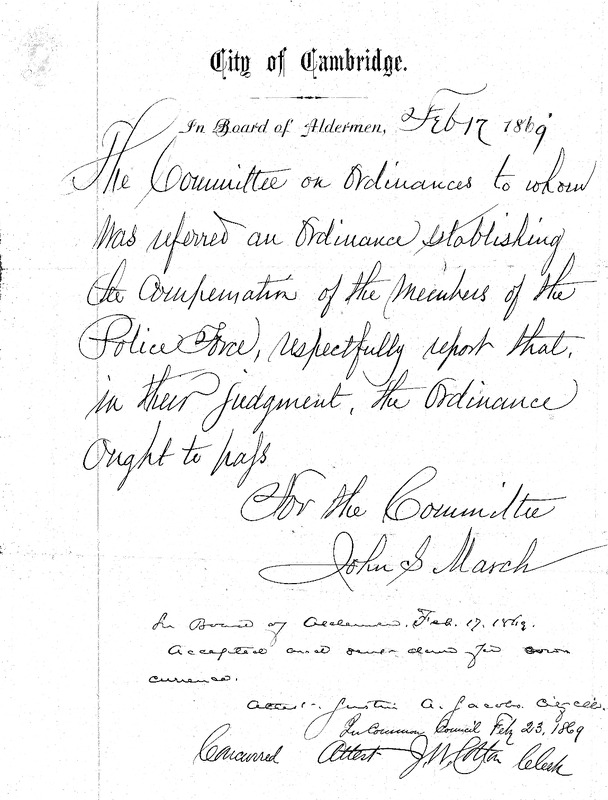 City of Cambridge.
In Board of Aldermen, Feb 17 1869
The Committee on Ordinances to whom
was referred an Ordinance establishing
the compensation of the members of the
Police Force, respectfully report that,
in their judgment, the Ordinance
ought to pass
For the Committee
John S March
In Board of Aldermen. Feb. 17. 1869.
Accepted and sent down for con
currence.
Attest. Justin A. Jacobs. City Clk.
In Common Council Feby 23, 1869
Concurred Attest J.W. Cotton Clerk